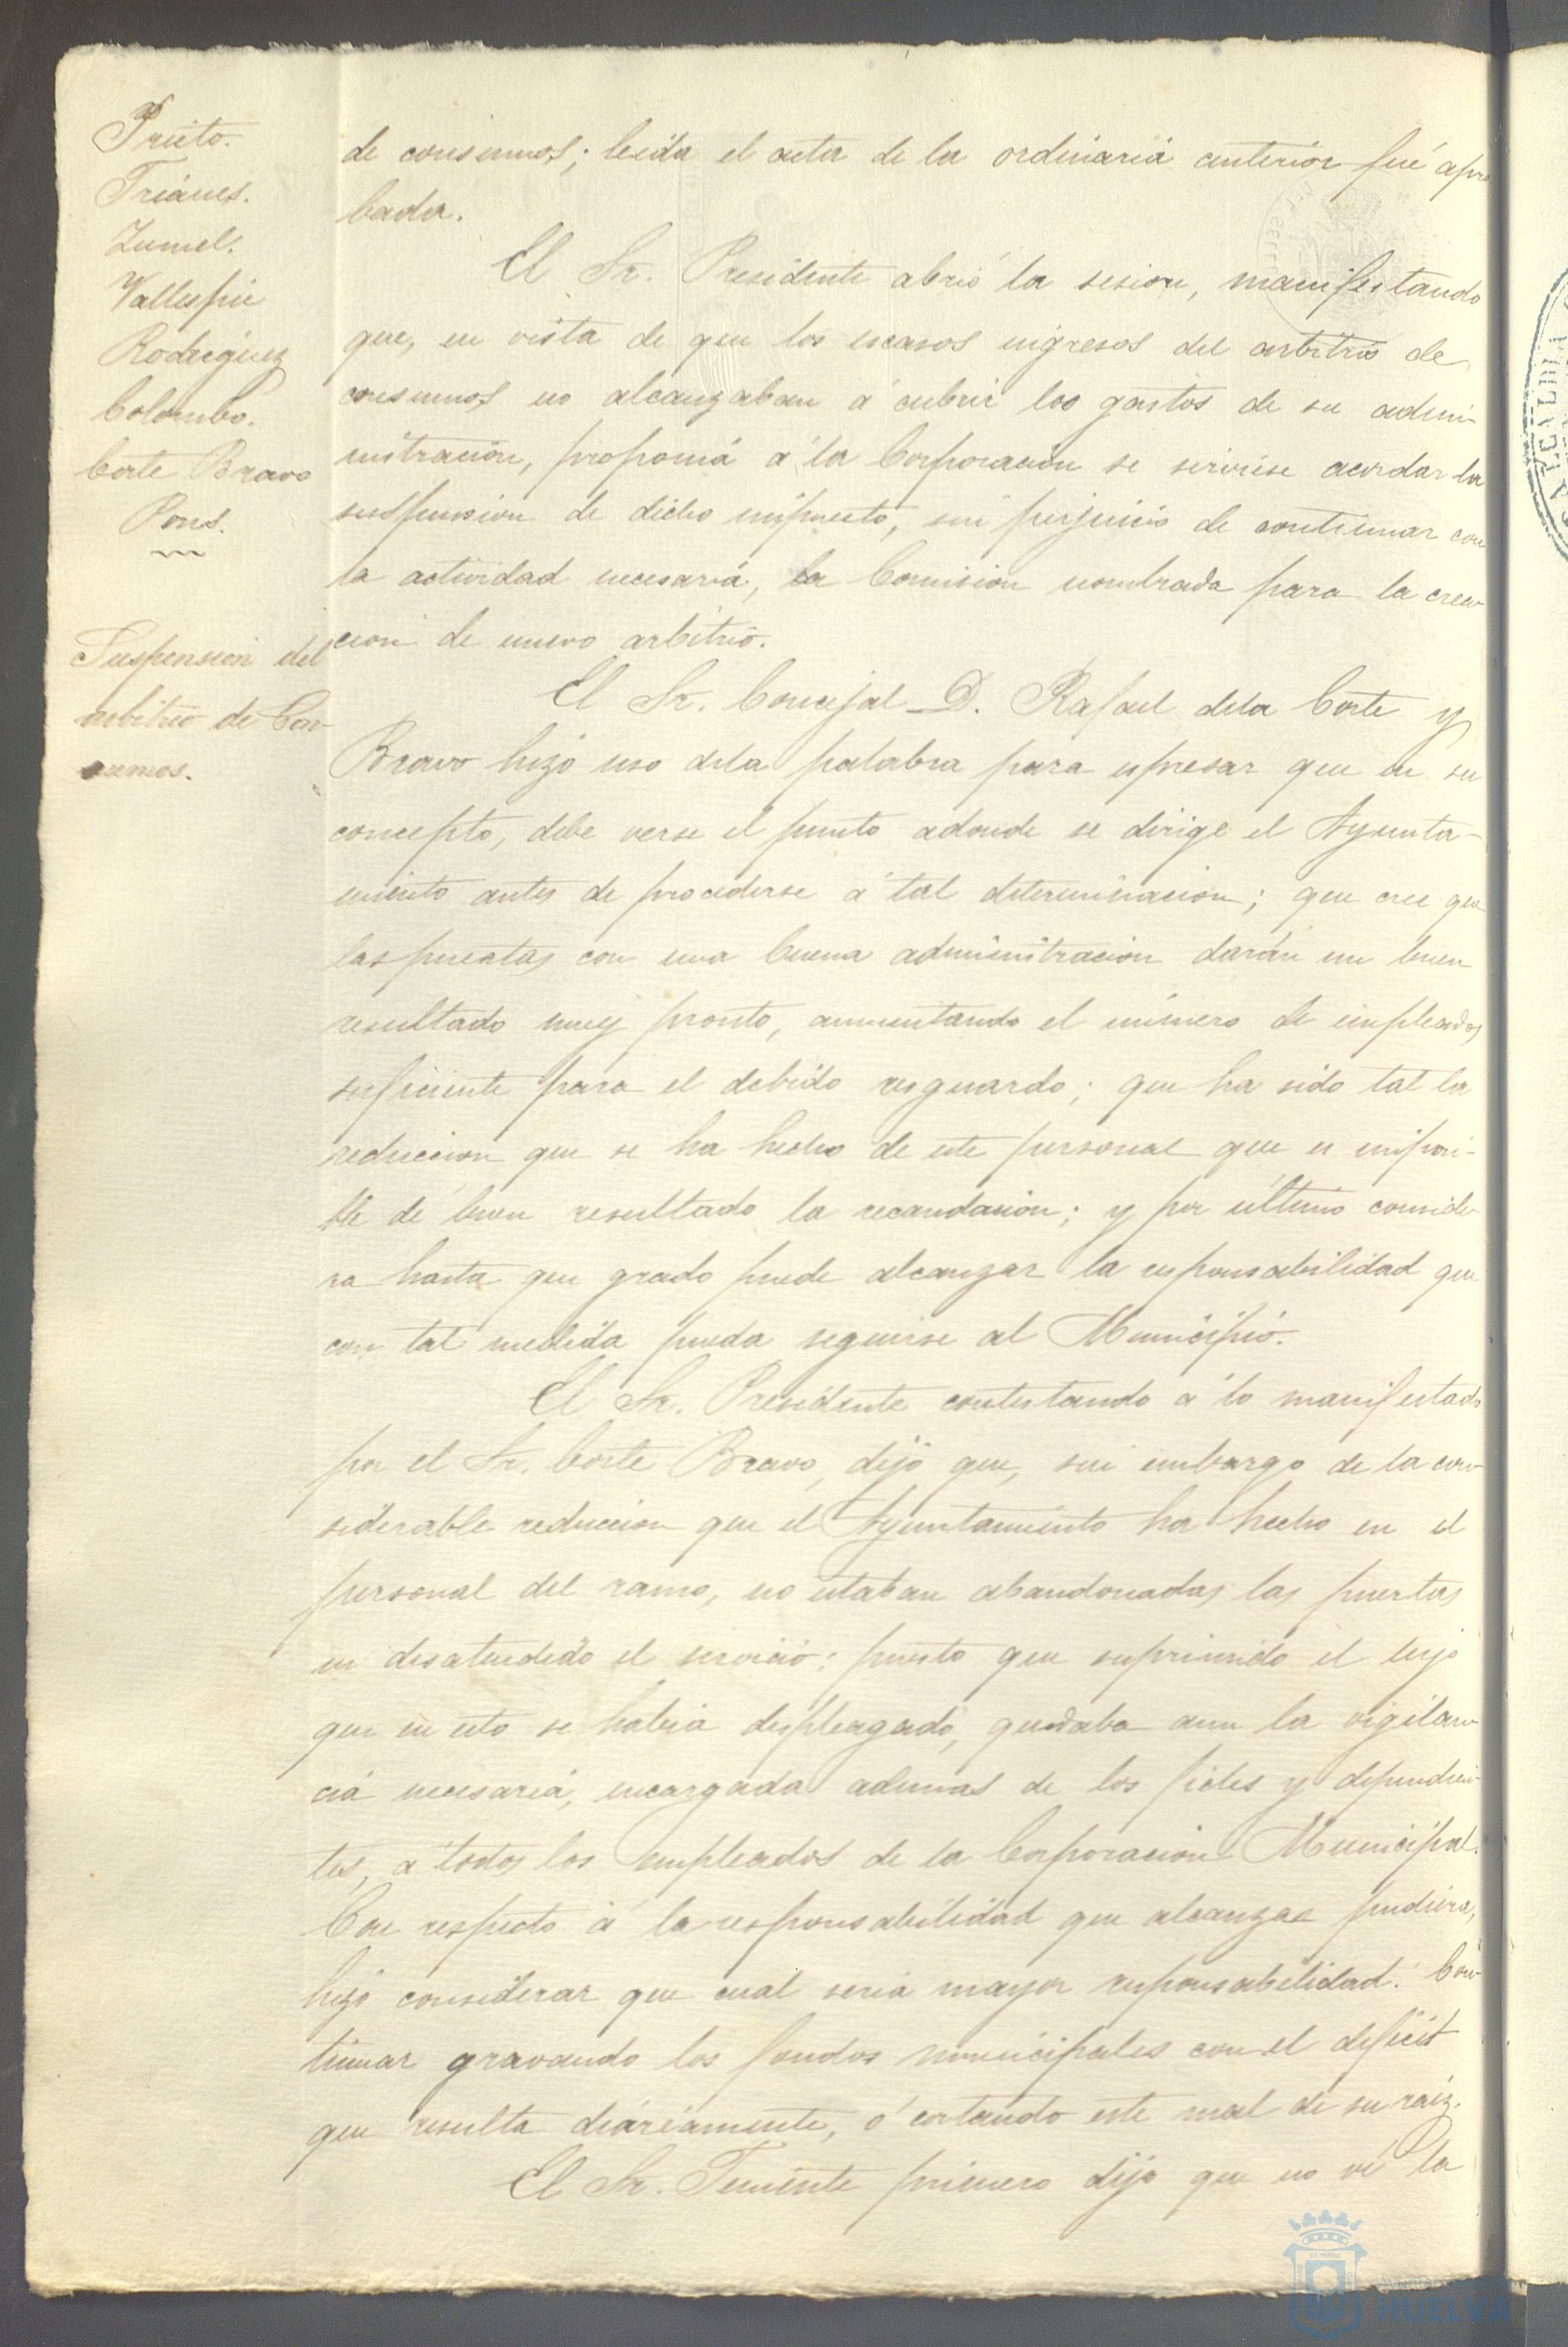 Prieto.
Triánes.
Zumel.
Vallespin
Rodriguez
Colombo.
Corte Bravo
Pons.
Suspension del
arbitrio de Con-
sumos.
de consumos; leida el acta de la ordinaria anterior fué apro
bada.
El Sr. Presidente abrió la sesion, manifestando
que, en vista de que los escasos ingresos del arbitrio de
consumos no alcanzaban á cubrir los gastos de su admi-
nistracion, proponia á la Corporacion se sirviese acordar la
suspension de dicho impuesto, sin perjuicio de continuar con
la actividad necesaria, la Comision nombrada para la crea-
cion de nuevo arbitrio.
El Sr. Concejal D. Rafael dela Corte y
Bravo hizo uso dela palabra para espresar que en su
concepto, debe verse el punto adonde se dirige el Ayunta-
miento antes de procederse á tal determinacion; que cree que
las puertas con una buena administracion darán un buen
resultado muy pronto, aumentando el número de empleados
suficiente para el debido resguardo; que ha sido tal la
reduccion que se ha hecho de este personal que es imposi-
ble dé buen resultado la recaudacion; y por último conside-
ra hasta que grado puede alcanzar la responsabilidad que
con tal medida pueda seguirse al Municipio.
El Sr. Presidente contestando á lo manifestado
por el Sr. Corte Bravo, dijo que, sin embargo de la con-
siderable reduccion que el Ayuntamiento ha hecho en el
personal del ramo, no estaban abandonadas las puertas
ni desatendido el servicio: puesto que suprimido el lujo
que en esto se habia desplegado, quedaba aun la vigilan-
cia necesaria, encargada ademas de los fieles y dependien-
tes, á todos los empleados de la Corporacion Municipal.
Con respecto á la responsabilidad que alcanzar pudiera,
hizo considerar que cual seria mayor responsabilidad: Con-
tinuar gravando los fondos municipales con el deficit
que resulta diáriamente, ó cortando este mal de su raiz.
El Sr. Teniente primero dijo que no vé la
HUELVA